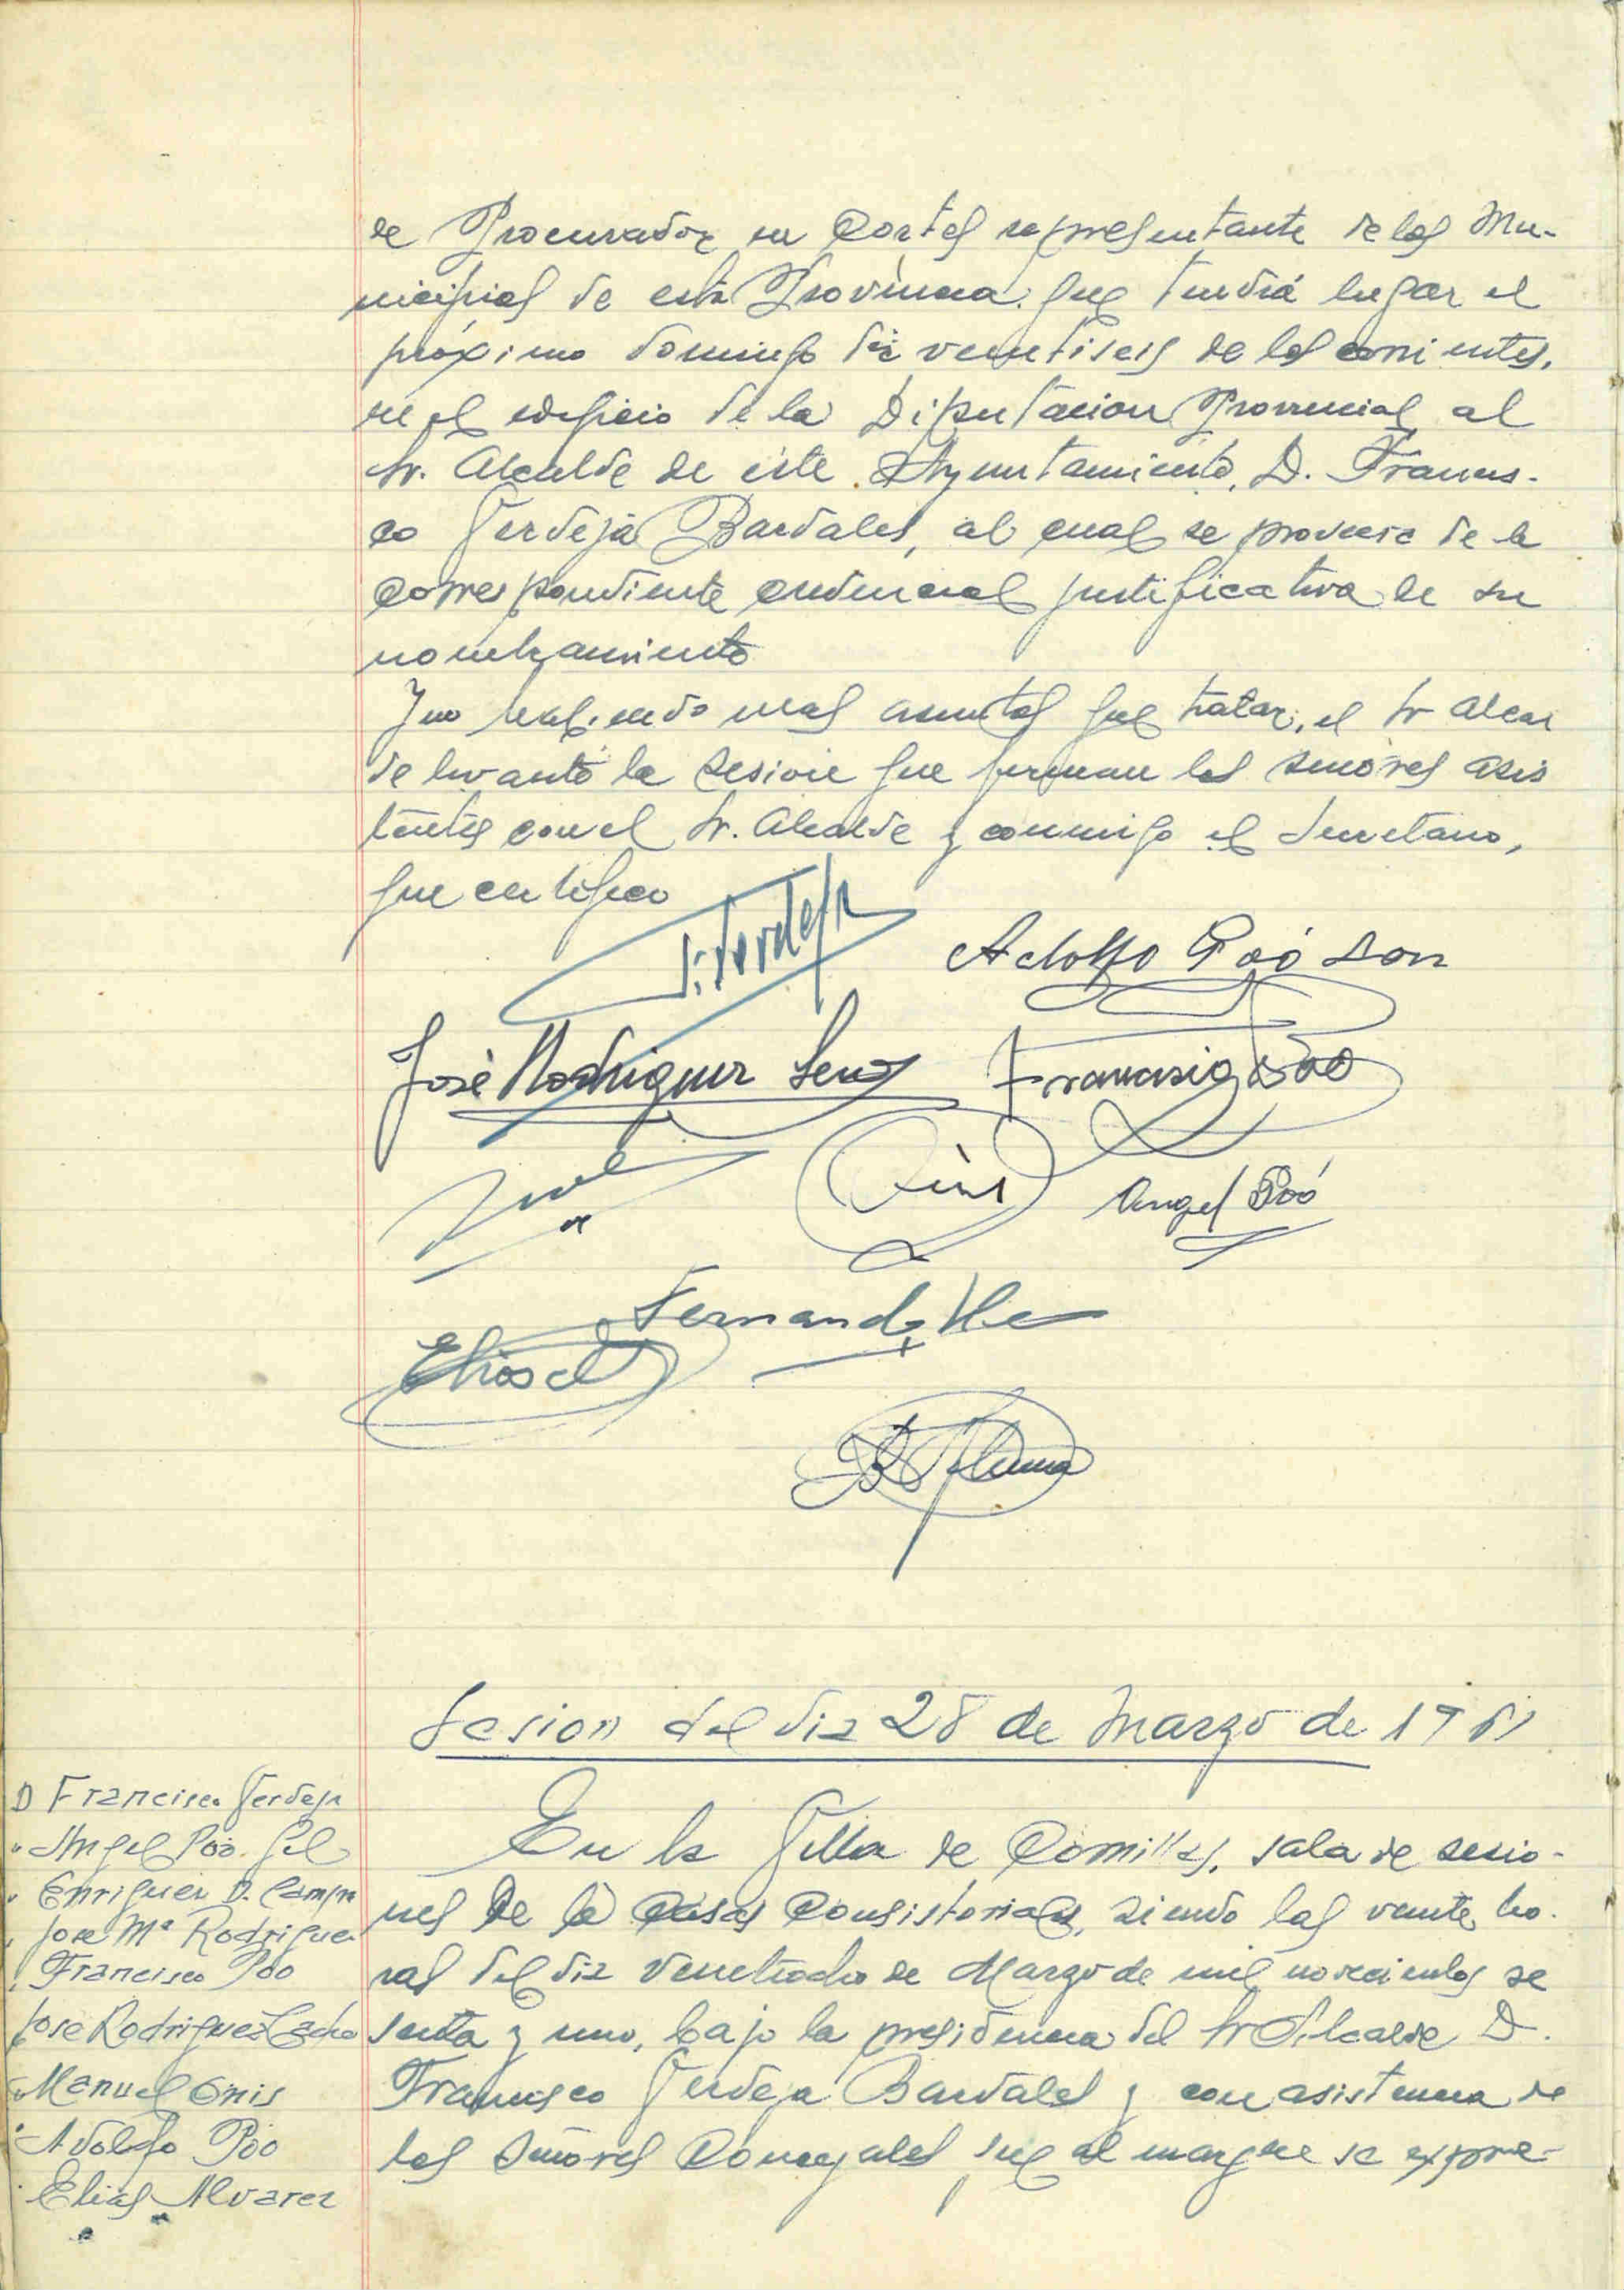 de Procurador en Cortes representante de los Mu-
nicipios de esta Provincia, que tendrá lugar el
próximo domingo dia ventiseis de los corrientes,
en el edificio de la Diputacion Provincial al
Sr. Alcalde de este Ayuntamiento, D. Francis-
co Verdeja Bardales, al cual se proveera de la
correspondiente credencial justificativa de su
nombramiento
Y no habiendo mas asuntos que tratar, el Sr Alcal
de levantó la sesion que firman los señores asis
tentes con el Sr. Alcalde y conmigo el Secretario,
que certifico
F. Verdeja
Adolfo Poó
José Rodriguez
Francisco Poo
Angel Poó
Fernandez
Elias A
Sesion del dia 28 de Marzo de 1961
D Francisco Verdeja
" Angel Poo Gil
" Enriquer D. Campa
" Jose Mª Rodriguez
" Francisco Poo
Jose Rodriguez Cacho
" Manuel Onis
" Adolfo Poo
" Elias Alvarez
En la Villa de Comillas, sala de sesio-
nes de la Casas Consistoriales, siendo las veinte ho-
ras del dia ventiocho de Marzo de mil novecientos se
senta y uno, bajo la presidencia del Sr Alcalde D.
Francisco Verdeja Bardales y con asistencia de
los Señores Concejales que al margen se expre-